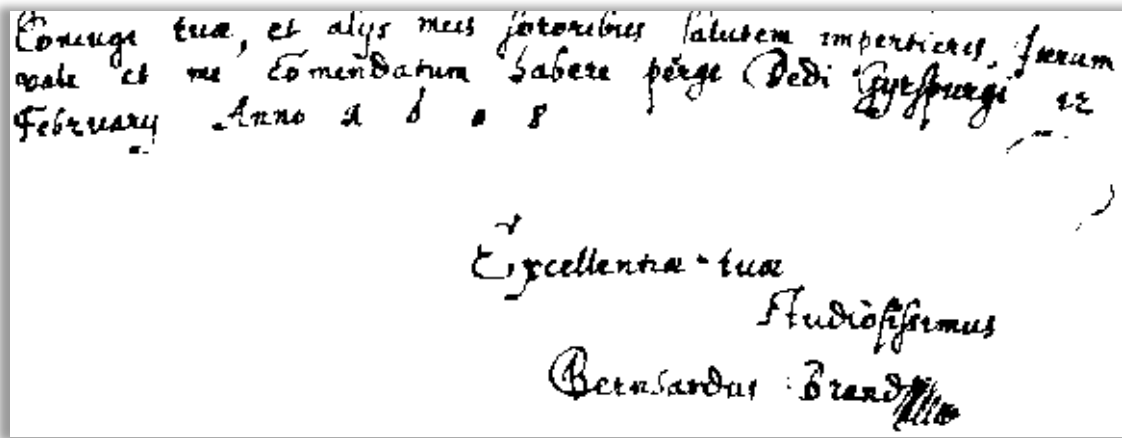 Coniugi tuæ, et alijs meis sororibus salutem impertieris. Iterum
vale et me Comendatum habere perge Dedi Gyrspurgi 12
February Anno 1608
Excellentiæ tuæ
Studiosissimus
Bernhardus Brand